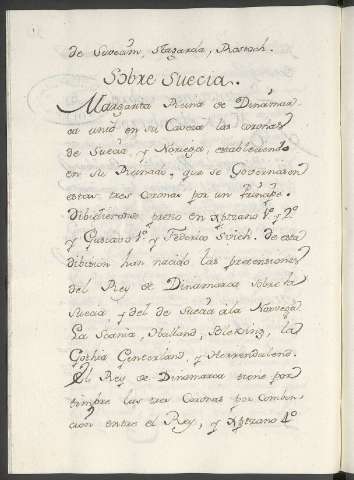 de Suecia, Stagarda, Rostoch.
Sobre Suecia.
Margarita Reina de Dinamar
ca unió en su Caveza las coronas
de Suecia, y Noriega, estableciendo
en su Reinado, que se Governaron
estas tres Coronas por un Principe.
Dibidieronse pero en Xptiano 1º y 2º
y Gustavo 1º y Federico de esta
dibision han nacido las pretensiones
del Rey de Dinamarca sobre la
Suecia, y del de Suecia à la Norvega
La Scania, Halland, Bleking, la
Gothia y Herrendaleno.
El Rey de Dinamarca tiene por
timbre las tres Coronas por combin
cion entre el Rey, y Xptiano 4º